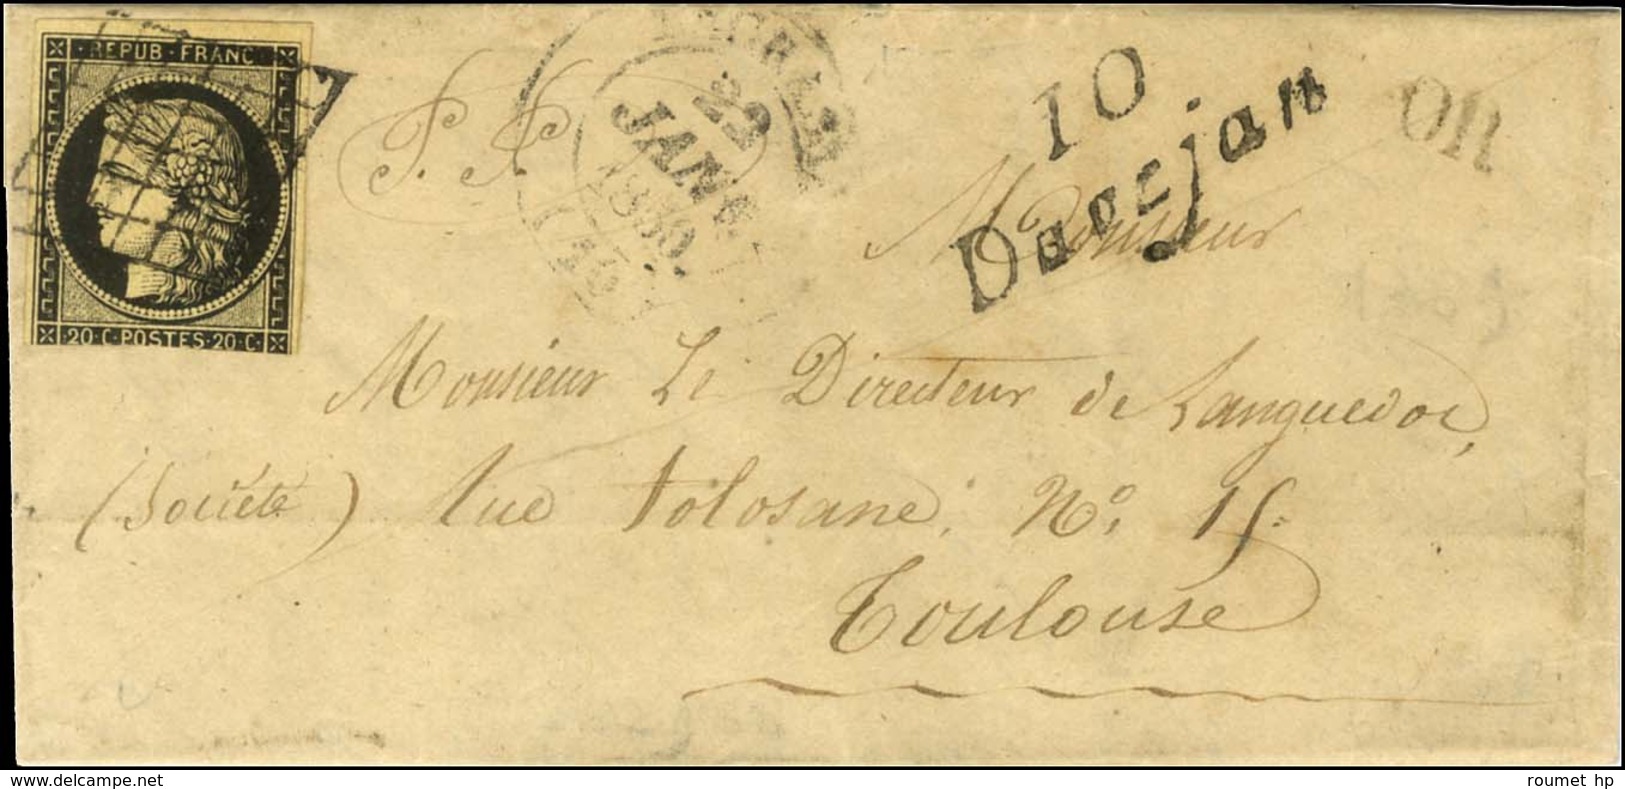 REPUB·FRANC
20·C·POSTES·20·C·
22
JANV.
1850.
10
Darcjan
OR
P. P.
Monsieur
Monsieur Le Directeur de Languedoc,
(Société) rue tolosane, N.º 15.
Toulouse
www.delcampe.net
roumet hp